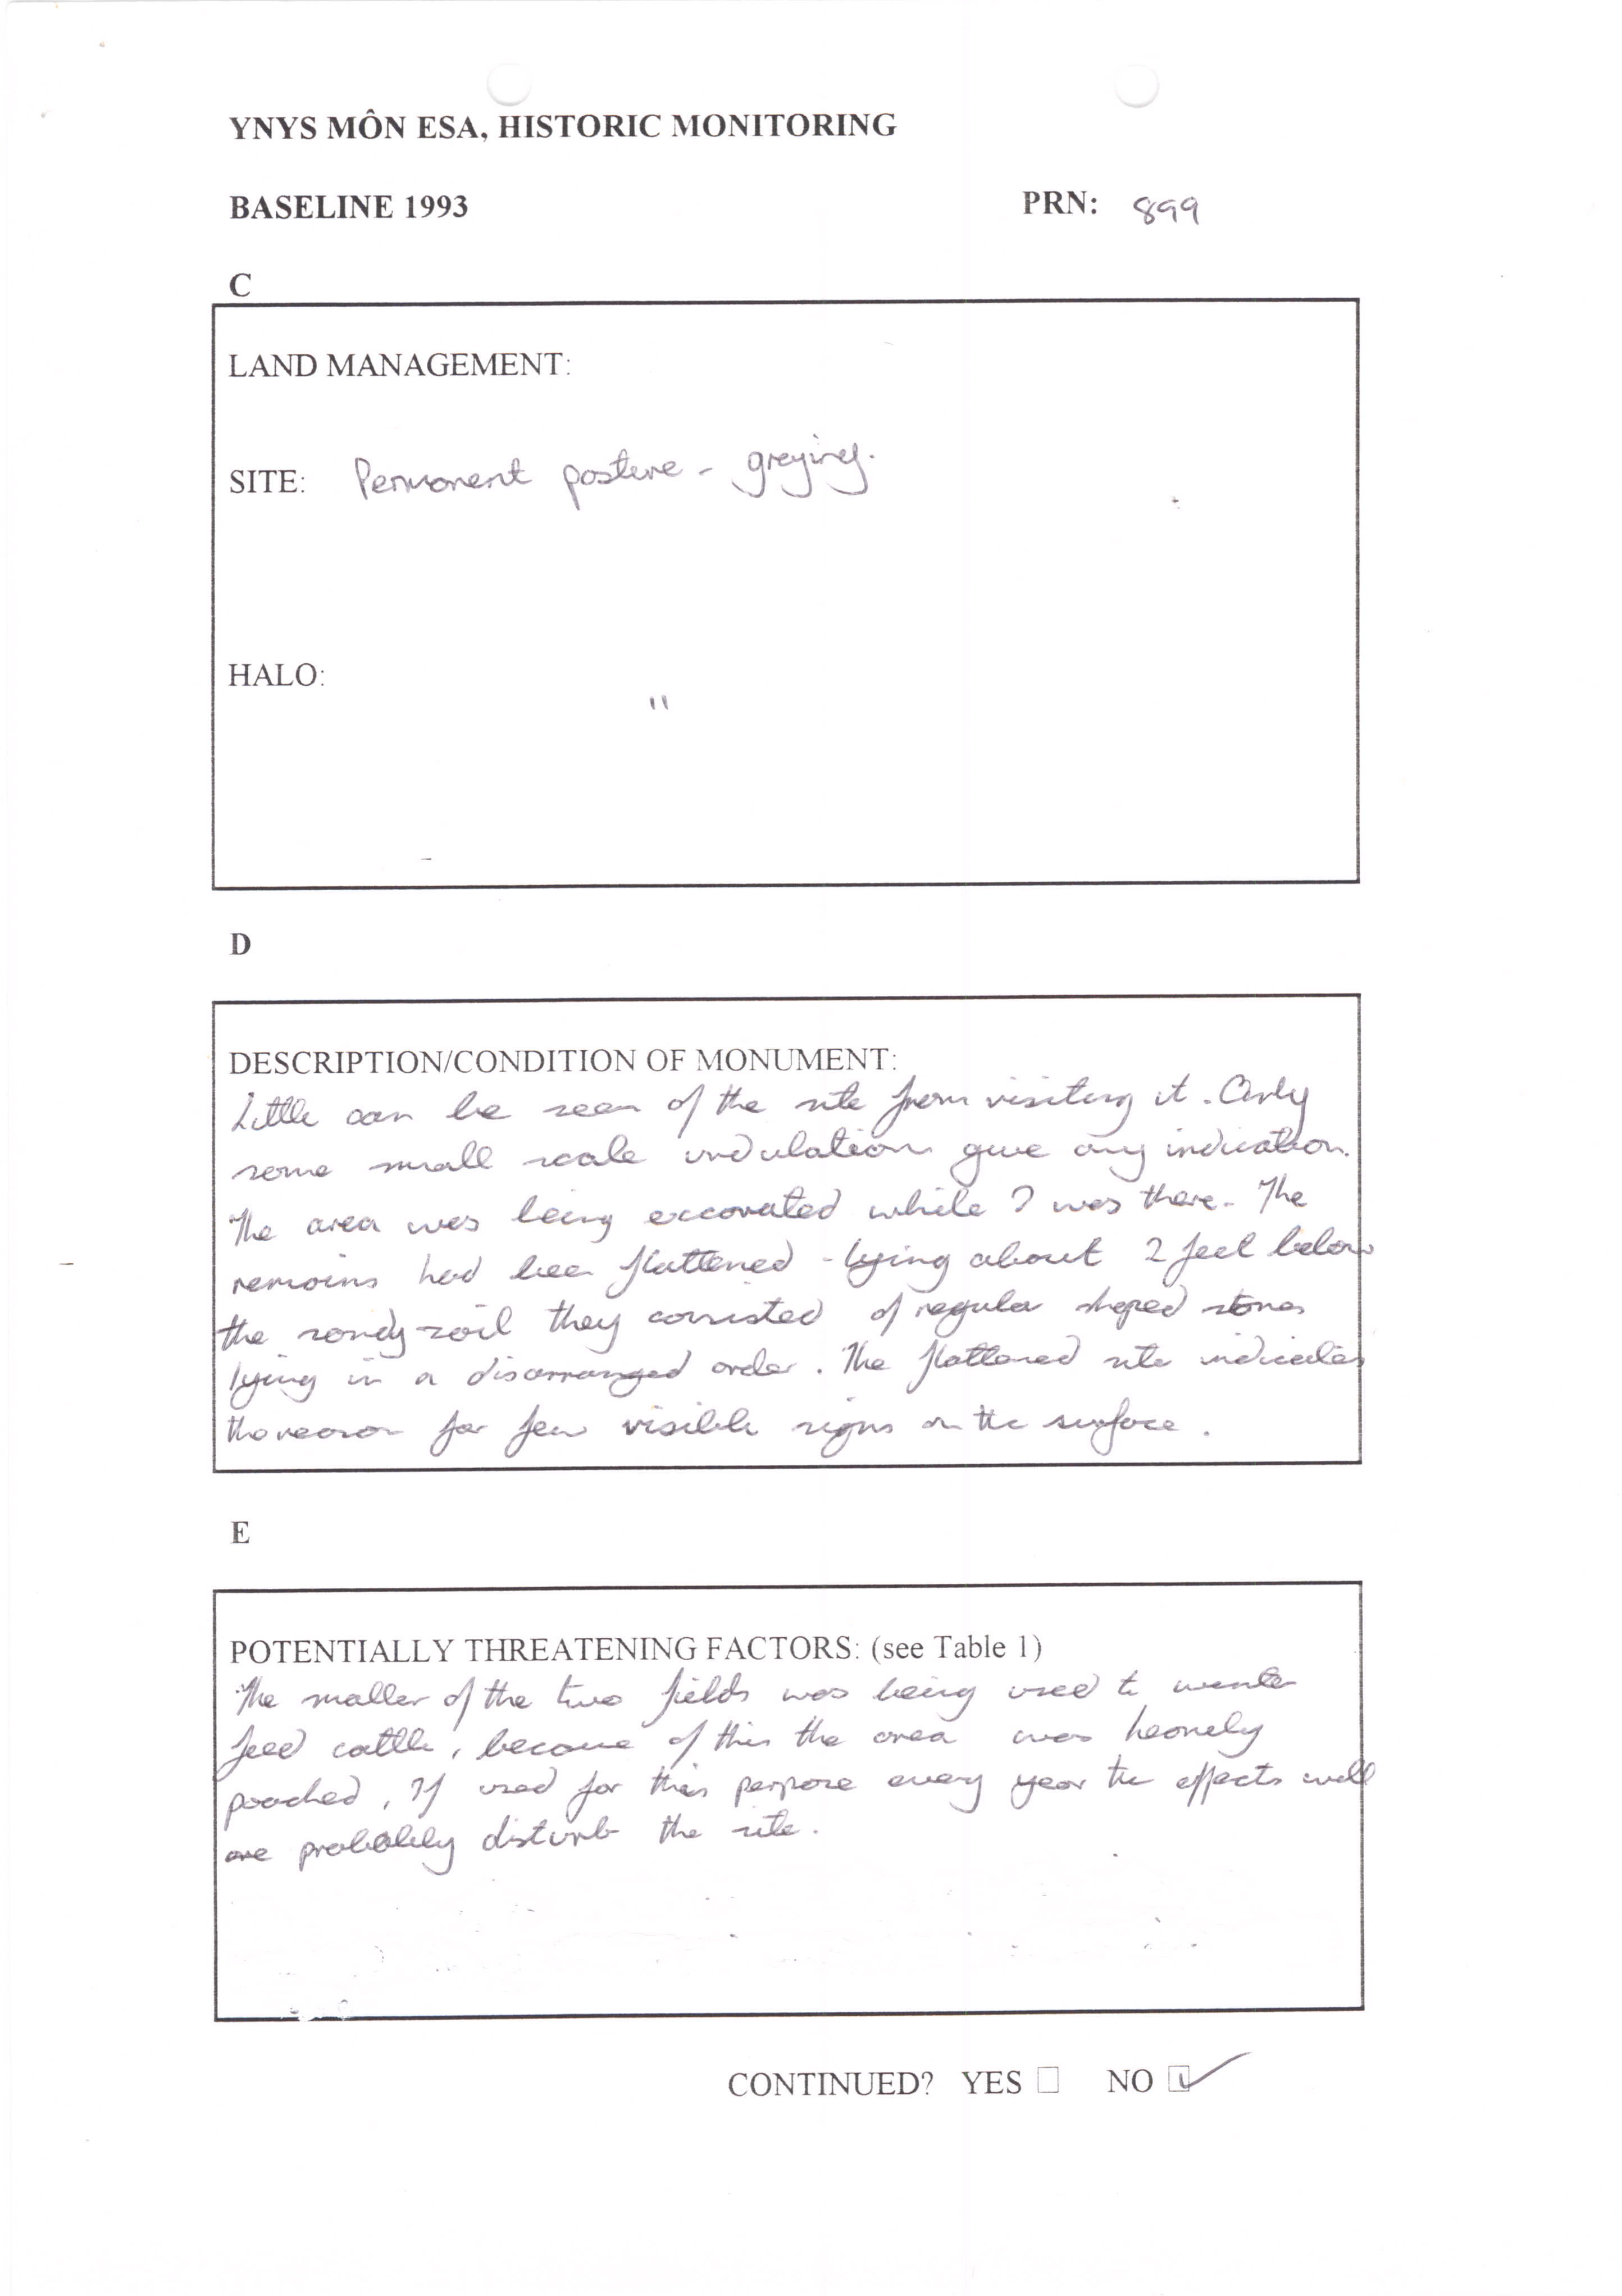 YNYS MÔN ESA, HISTORIC MONITORING
BASELINE 1993 PRN: 899
C
LAND MANAGEMENT:
SITE: Permanent pasture - grazing.
HALO:
"
D
DESCRIPTION/CONDITION OF MONUMENT:
Little can be seen of the site from visiting it. Only
some small scale undulation give any indication.
The area was being excavated while I was there. The
remains had been flattened - lying about 2 feet below
the sandy soil they consisted of regular shaped stones
lying in a disarranged order. The flattened site indicates
the reason for few visible signs on the surface.
E
POTENTIALLY THREATENING FACTORS: (see Table 1)
The smaller of the two fields was being used to winter
feed cattle, because of this the area was heavily
poached, If used for this purpose every year the effects will
are probably disturb the site.
CONTINUED? YES NO ✓